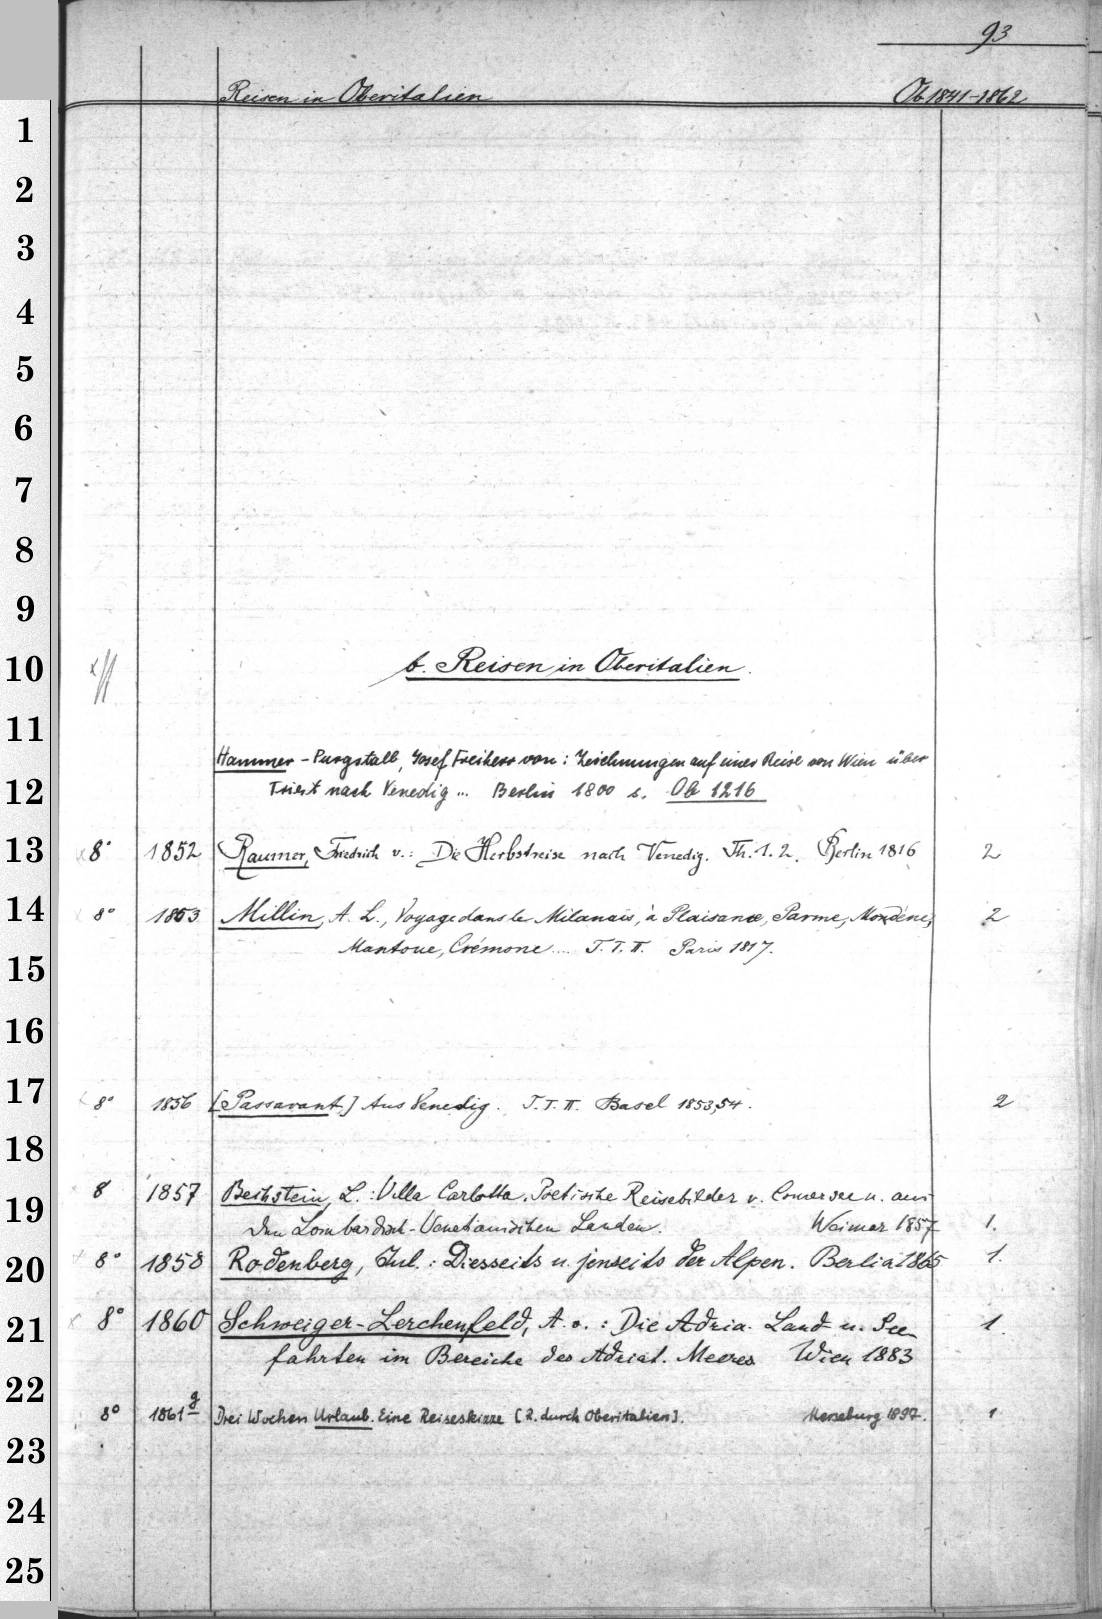 93
Reisen in Oberitalien Ob 1841-1862
1
2
3
4
5
6
7
8
9
10 b. Reisen in Oberitalien.
11
Hammer-Purgstall, Josef Freiherr von: Zeichnungen auf einer Reise von Wien über
12 Triest nach Venedig ... Berlin 1800 s. Ob 1216
13 8° 1852 Raumer, Friedrich v.: Die Herbstreise nach Venedig. Th. 1. 2. Berlin 1816 2
14 8° 1853 Millin, A. L., Voyage dans le Milanais, à Plaisance, Parme, Modène, 2
Mantoue, Crémone .... T. I. II. Paris 1817.
15
16
17 8° 1856 [Passavant] Aus Venedig. T. I. II. Basel 1853,54. 2
18
8° 1857 Bechstein, L.: Villa Carlotta. Poetische Reisebilder v. Comersee u. aus
19 den Lombardisch-Venetianischen Landen. Weimar 1857 1.
20 8° 1858 Rodenberg, Jul.: Diesseits u. jenseits der Alpen. Berlin 1865 1.
21 8° 1860 Schweiger-Lerchenfeld, A. v.: Die Adria. Land- u. See- 1.
fahrten im Bereiche des Adriat. Meeres Wien 1883
22
8° 1861 g Drei Wochen Urlaub. Eine Reiseskizze [R. durch Oberitalien]. Merseburg 1897. 1
23
24
25